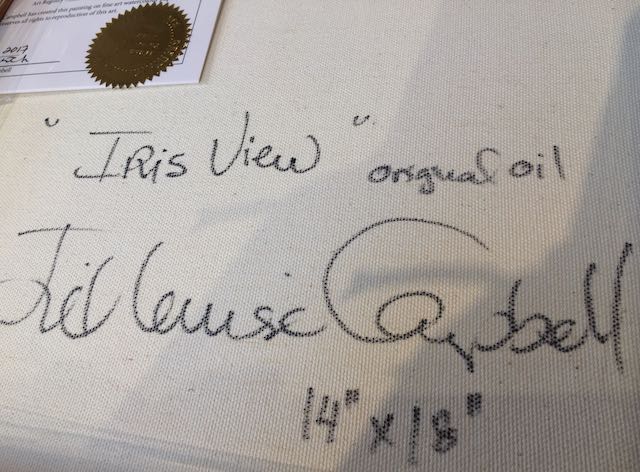 Art Registry
Campbell has created this painting on fine art watercolor
reserves all rights to reproduction of this art.
2017
" IRis View " original oil
Jill Louise Campbell
14" x 18"